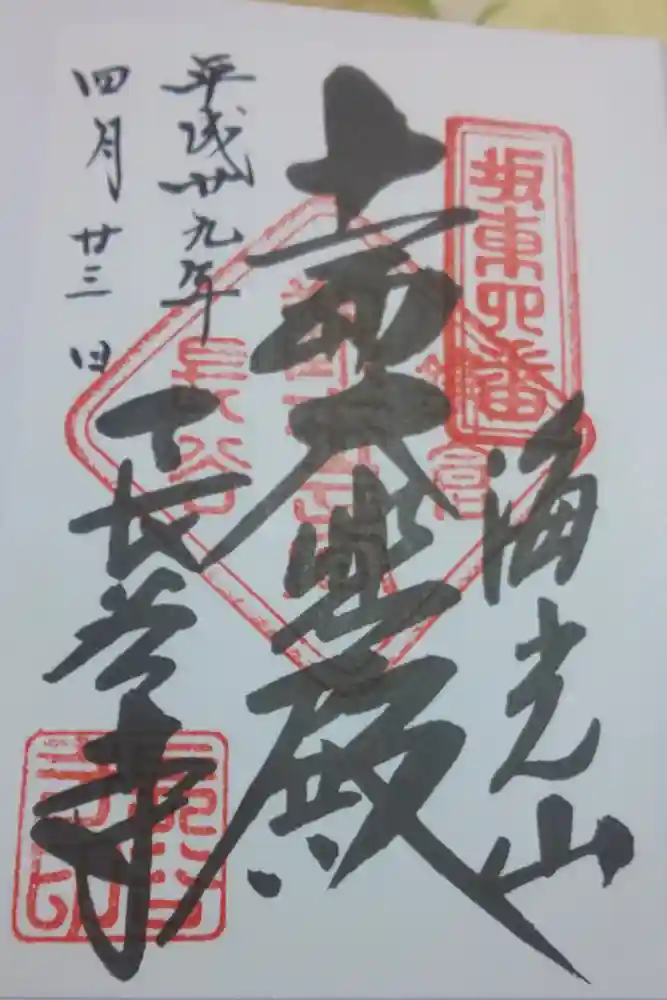 坂東四番
海光山
十一面大悲殿
平成廿九年
四月廿三日
長谷寺